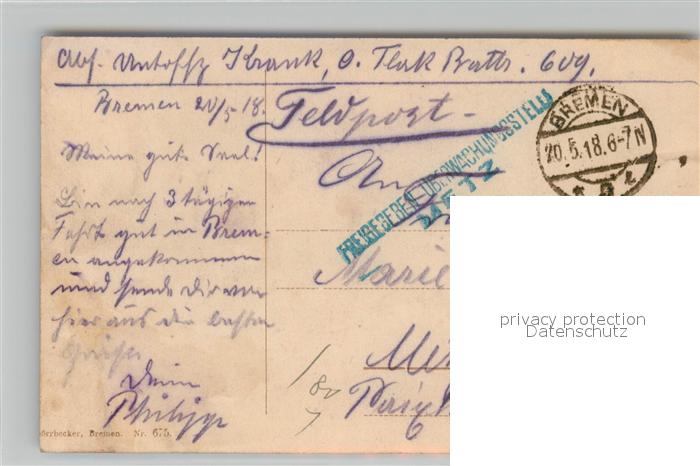 Abs. Untoffz Krank, O. Flak Battr. 609.
Bremen 20/5 18.
Feldpost
BREMEN
20.5.18.6-7N
FREIGEGEBEN ÜBERWACHUNGSSTELLE
METZ
Meine gute Seel!
Bin nach 3 tägigen
Fahrt gut in Brem-
en angekommen
und sende dir von
hier aus die besten
Grüße
Dein
Philipp
An
Marie
privacy protection
Datenschutz
Bremen. Nr. 675.